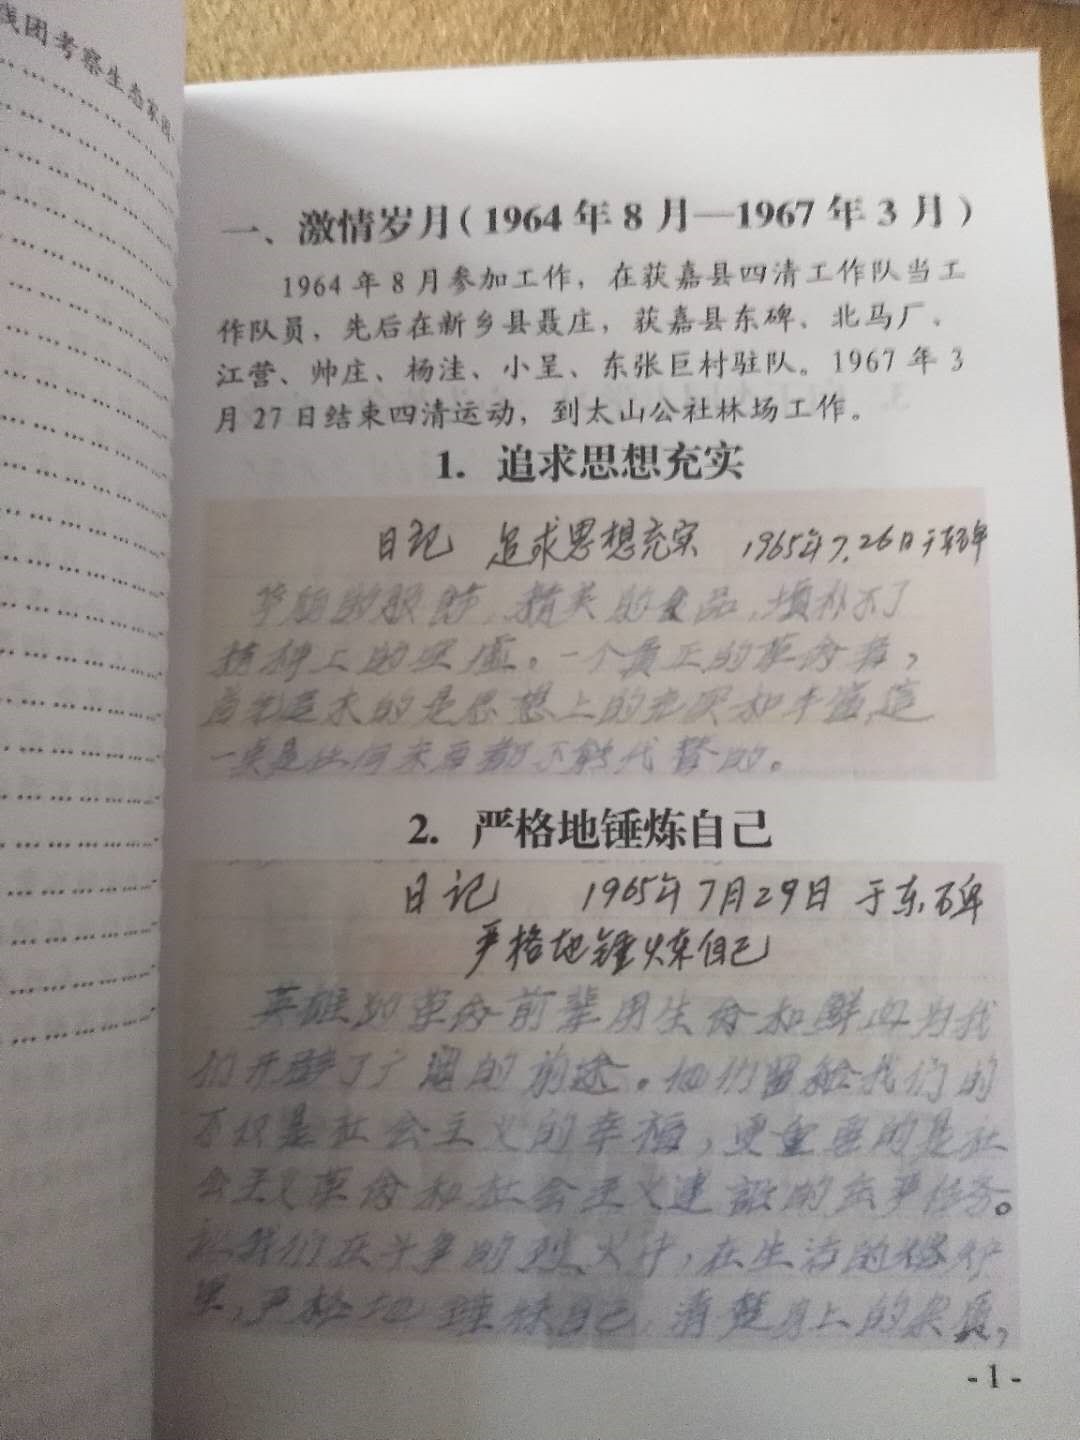 线团考察生态家园
一、激情岁月(1964年8月—1967年3月)
1964年8月参加工作，在获嘉县四清工作队当工
作队员，先后在新乡县聂庄，获嘉县东碑、北马厂、
江营、帅庄、杨洼、小呈、东张巨村驻队。1967年3
月27日结束四清运动，到太山公社林场工作。
1. 追求思想充实
日记 追求思想充实 1965年7.26日于东碑
华丽的服饰,精美的食品,填补不了
精神上的空虚。一个真正的革命者，
首先追求的是思想上的充实和丰富,这
一点是任何东西都不能代替的。
2. 严格地锤炼自己
日记 1965年7月29日 于东碑
严格地锤炼自己
英雄的革命前辈用生命和鲜血为我
们开辟了广阔的前途。他们留给我们的
不仅是社会主义的幸福，更重要的是社
会主义革命和社会主义建设的庄严任务。
让我们在斗争的烈火中，在生活的熔炉
里,严格地锤炼自己,清楚身上的杂质，
-1-